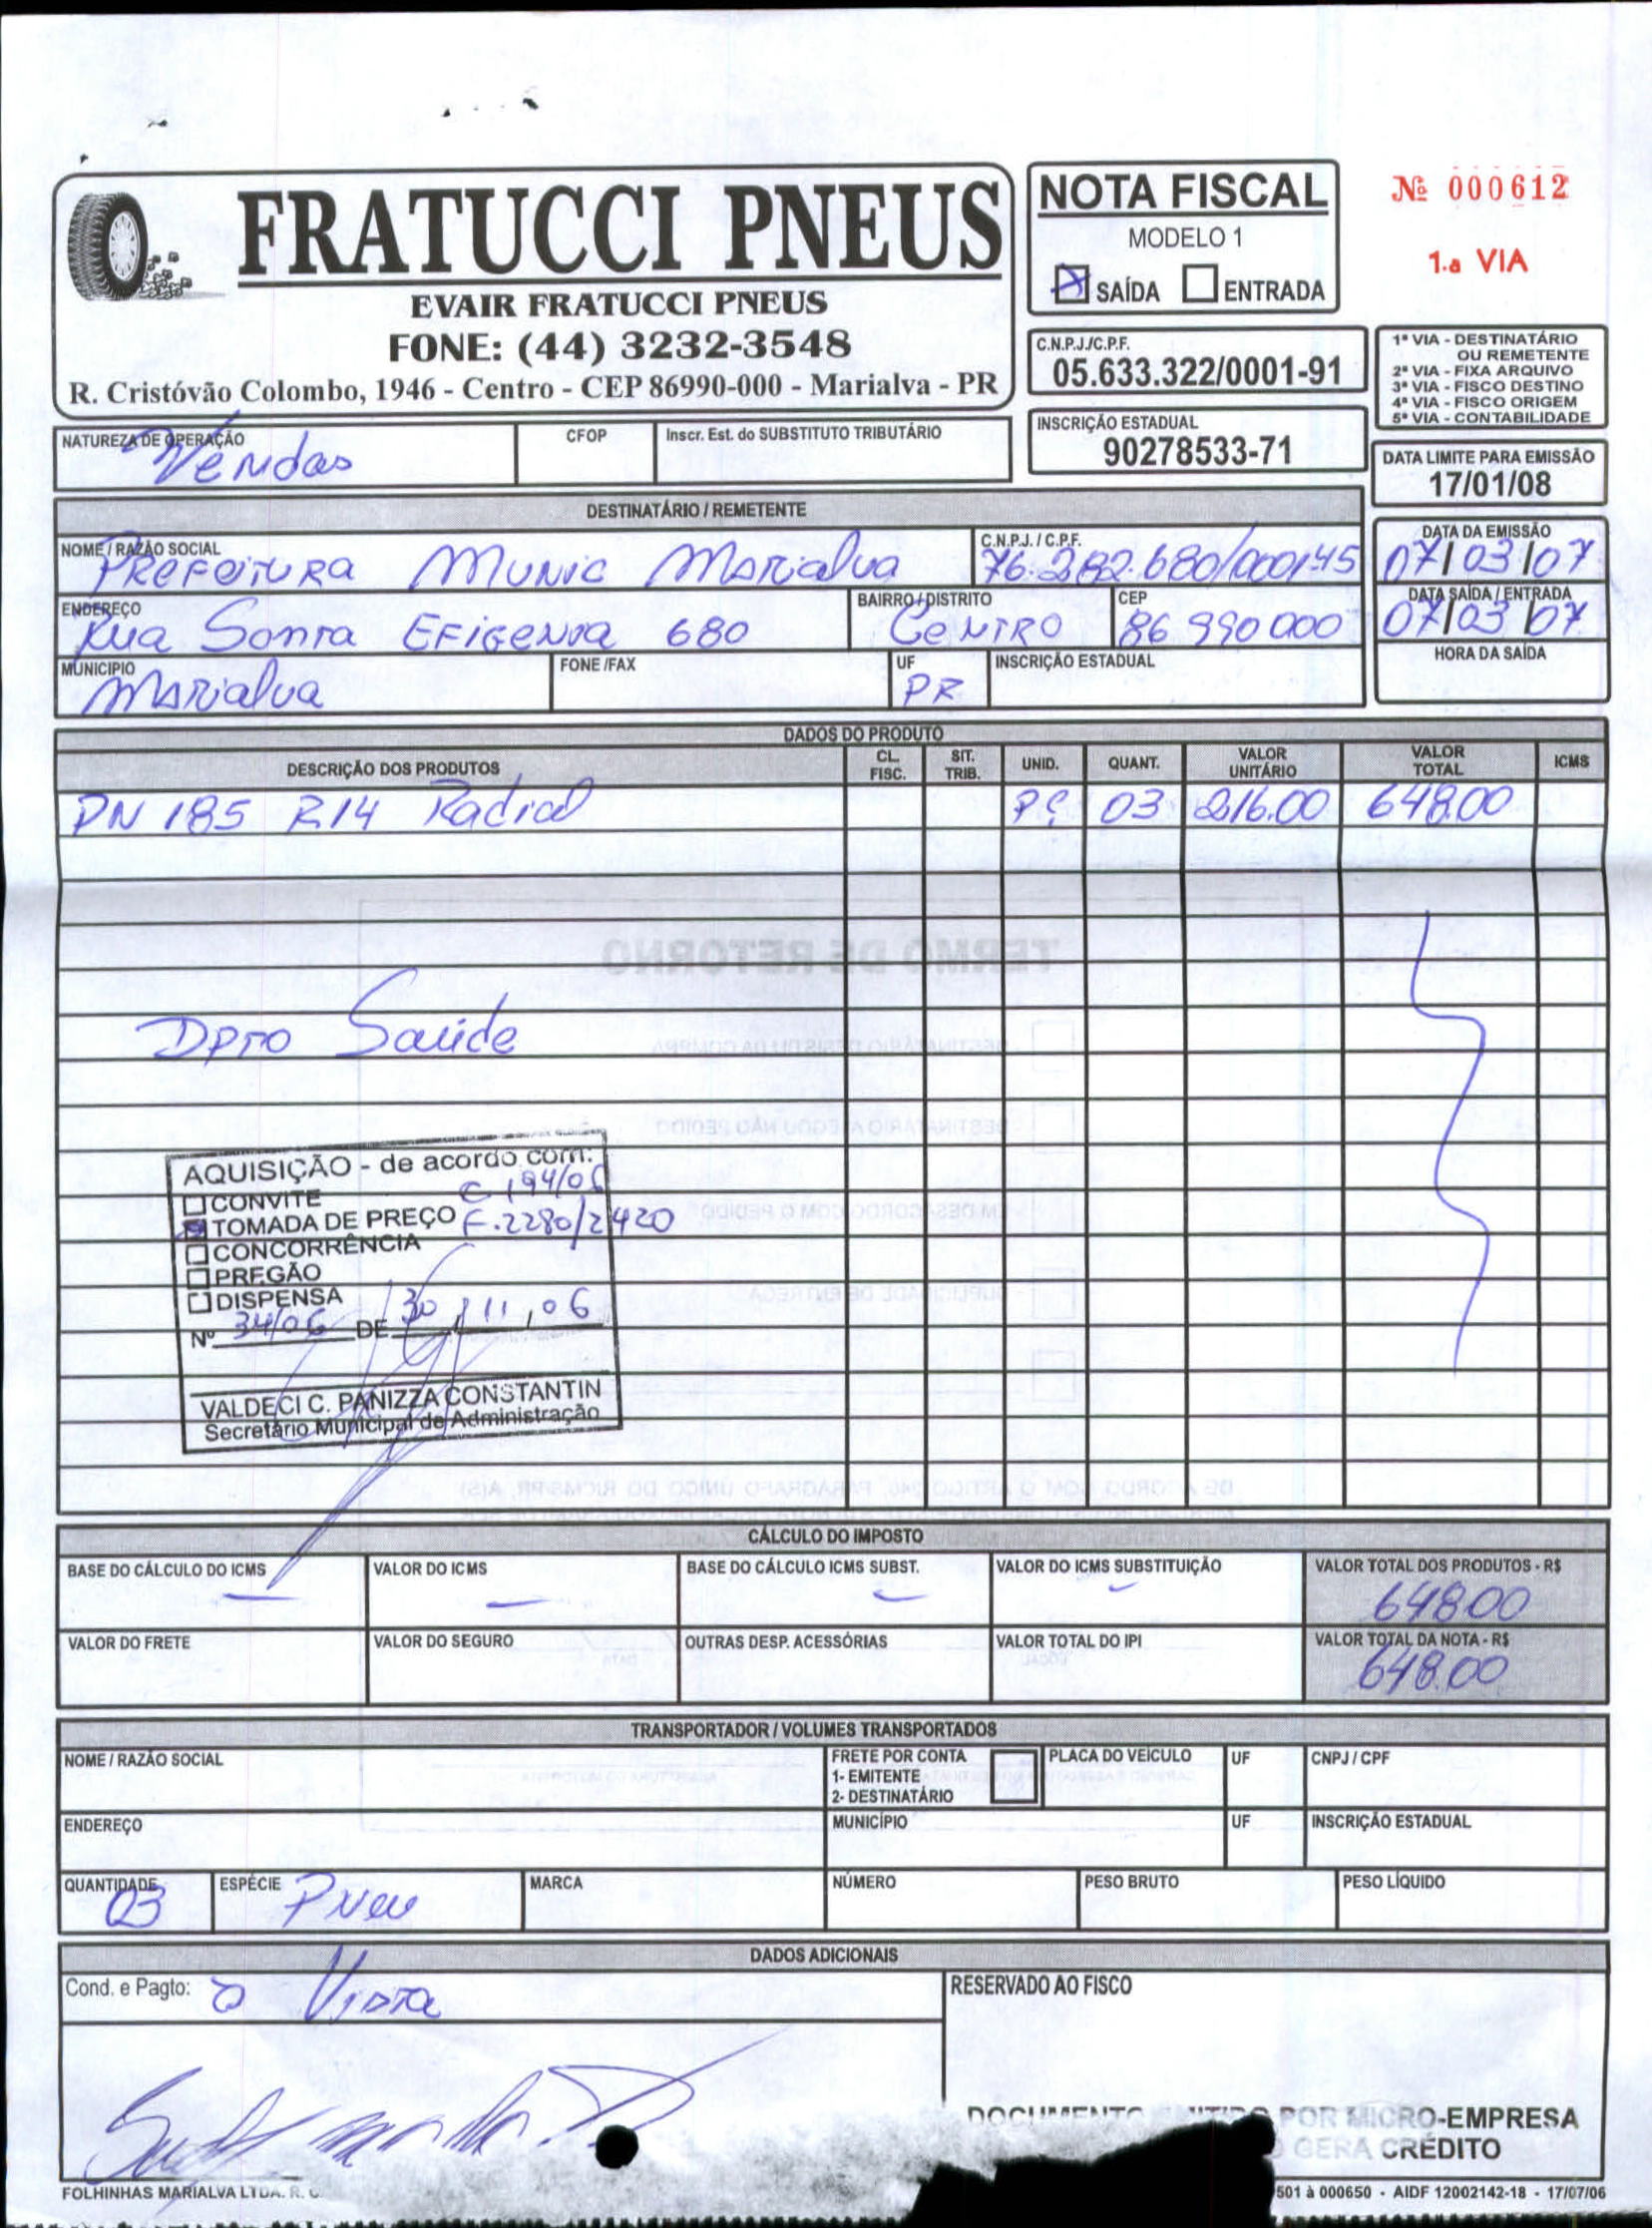 FRATUCCI PNEUS
EVAIR FRATUCCI PNEUS
FONE: (44) 3232-3548
R. Cristóvão Colombo, 1946 - Centro - CEP 86990-000 - Marialva - PR
NOTA FISCAL
MODELO 1
X SAÍDA ENTRADA
Nº 000612
1.a VIA
C.N.P.J./C.P.F.
05.633.322/0001-91
1ª VIA - DESTINATÁRIO
OU REMETENTE
2ª VIA - FIXA ARQUIVO
3ª VIA - FISCO DESTINO
4ª VIA - FISCO ORIGEM
5ª VIA - CONTABILIDADE
NATUREZA DE OPERAÇÃO CFOP Inscr. Est. do SUBSTITUTO TRIBUTÁRIO
Vendas
INSCRIÇÃO ESTADUAL
90278533-71
DATA LIMITE PARA EMISSÃO
17/01/08
DESTINATÁRIO / REMETENTE
NOME / RAZÃO SOCIAL C.N.P.J. / C.P.F. DATA DA EMISSÃO
Prefeitura Munic Marialva 76.282.680/0001-45 07/03/07
ENDEREÇO BAIRRO / DISTRITO CEP DATA SAÍDA / ENTRADA
Rua Santa Efigenia 680 Centro 86 990 000 07/03/07
MUNICIPIO FONE /FAX UF INSCRIÇÃO ESTADUAL HORA DA SAÍDA
Marialva PR
DADOS DO PRODUTO
DESCRIÇÃO DOS PRODUTOS CL. FISC. SIT. TRIB. UNID. QUANT. VALOR UNITÁRIO VALOR TOTAL ICMS
PN 185 R14 Radial PÇ 03 216.00 648.00
Dpto Saúde
AQUISIÇÃO - de acordo com:
CONVITE C 194/06
TOMADA DE PREÇO F.2280/2420
CONCORRÊNCIA
PREGÃO
DISPENSA
Nº 34/06 DE 30 / 11 / 06
VALDECI C. PANIZZA CONSTANTIN
Secretário Municipal de Administração
CÁLCULO DO IMPOSTO
BASE DO CÁLCULO DO ICMS VALOR DO ICMS BASE DO CÁLCULO ICMS SUBST. VALOR DO ICMS SUBSTITUIÇÃO VALOR TOTAL DOS PRODUTOS - R$
— — — — 648.00
VALOR DO FRETE VALOR DO SEGURO OUTRAS DESP. ACESSÓRIAS VALOR TOTAL DO IPI VALOR TOTAL DA NOTA - R$
648.00
TRANSPORTADOR / VOLUMES TRANSPORTADOS
NOME / RAZÃO SOCIAL FRETE POR CONTA PLACA DO VEÍCULO UF CNPJ / CPF
1- EMITENTE
2- DESTINATÁRIO
ENDEREÇO MUNICÍPIO UF INSCRIÇÃO ESTADUAL
QUANTIDADE ESPÉCIE MARCA NÚMERO PESO BRUTO PESO LÍQUIDO
03 Pneu
DADOS ADICIONAIS
Cond. e Pagto: a Vista
RESERVADO AO FISCO
DOCUMENTO EMITIDO POR MICRO-EMPRESA
GERA CRÉDITO
FOLHINHAS MARIALVA LTDA. R.
501 à 000650 - AIDF 12002142-18 - 17/07/06